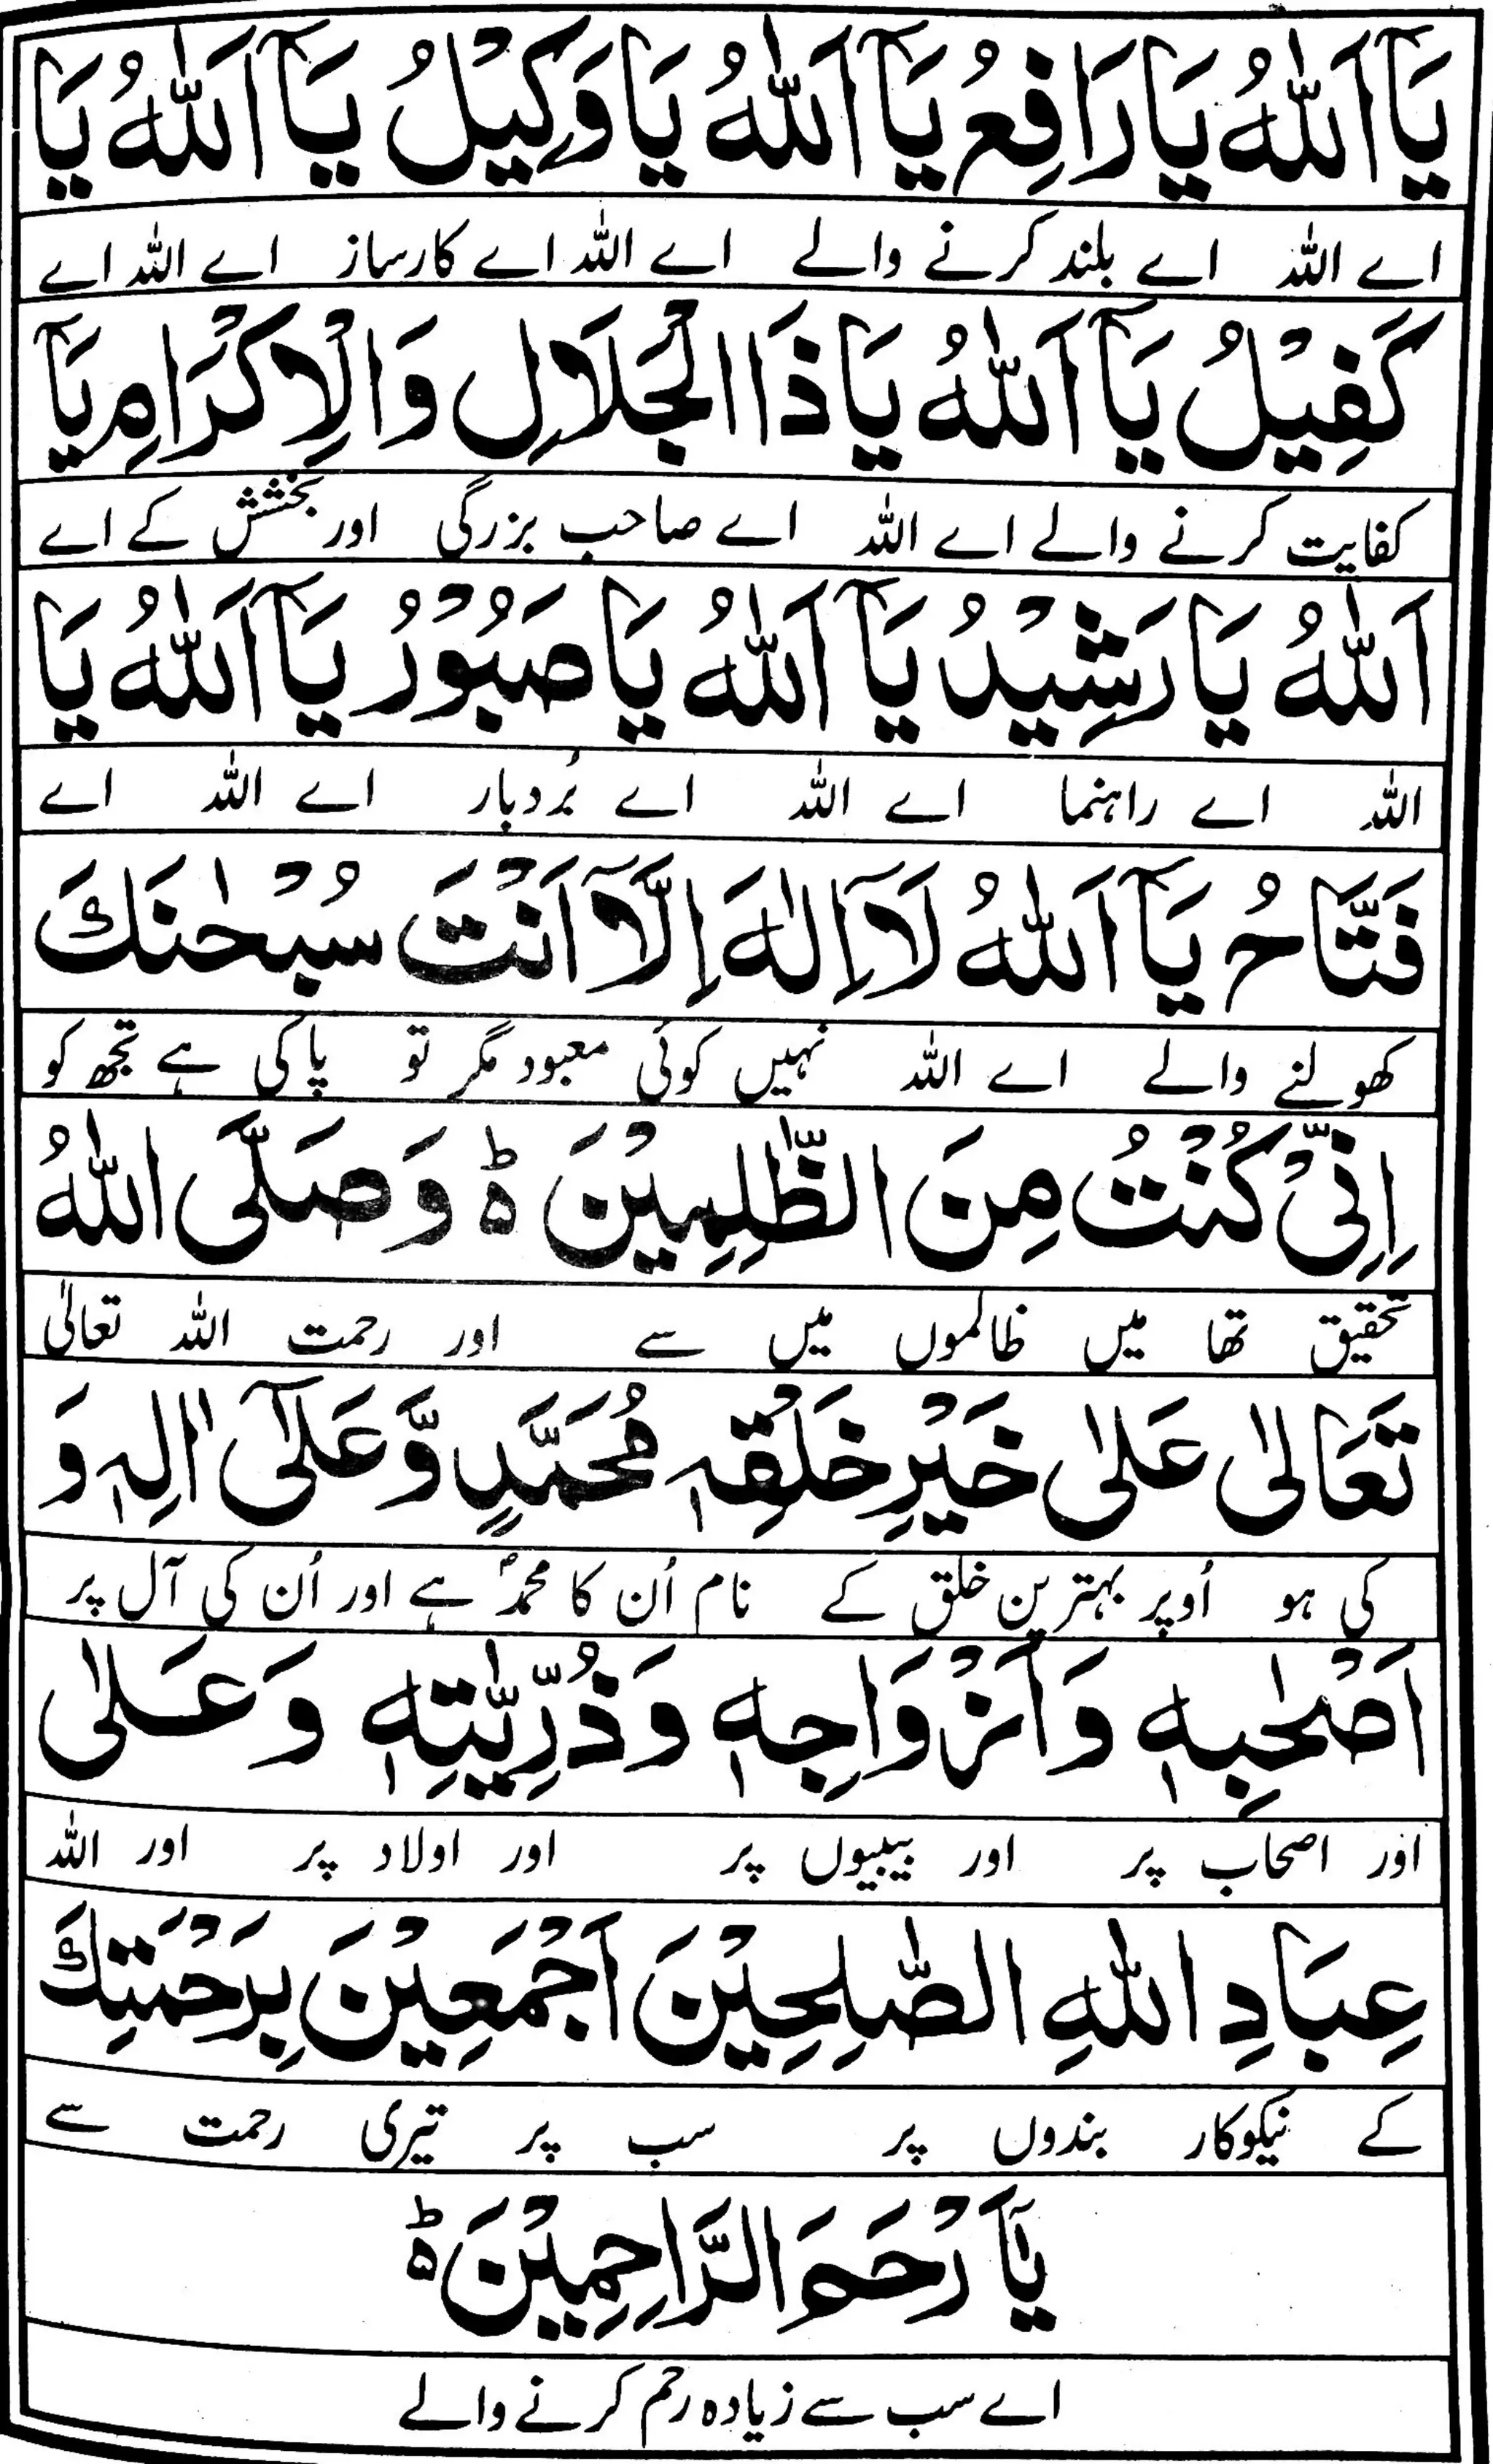 يَآ اَللّٰهُ يَا رَافِعُ يَآ اَللّٰهُ يَا وَكِيْلُ يَآ اَللّٰهُ يَا
اے اللہ اے بلند کرنے والے اے اللہ اے کارساز اے اللہ اے
كَفِيْلُ يَآ اَللّٰهُ يَا ذَا الْجَلَالِ وَالْاِكْرَامِ يَآ
کفایت کرنے والے اے اللہ اے صاحب بزرگی اور بخشش کے اے
اَللّٰهُ يَا رَشِيْدُ يَآ اَللّٰهُ يَا صَبُوْرُ يَآ اَللّٰهُ يَا
اللہ اے راہنما اے اللہ اے بُردبار اے اللہ اے
فَتَّاحُ يَآ اَللّٰهُ لَآ اِلٰهَ اِلَّآ اَنْتَ سُبْحٰنَكَ
کھولنے والے اے اللہ نہیں کوئی معبود مگر تو پاکی ہے تجھ کو
اِنِّيْ كُنْتُ مِنَ الظّٰلِمِيْنَ ہ وَصَلَّى اللّٰهُ
تحقیق تھا میں ظالموں میں سے اور رحمت اللہ تعالیٰ
تَعَالٰى عَلٰى خَيْرِ خَلْقِهٖ مُحَمَّدٍ وَّعَلٰٓى اٰلِهٖ وَ
کی ہو اُوپر بہترین خلق کے نام اُن کا محمدؐ ہے اور اُن کی آل پر
اَصْحٰبِهٖ وَاَزْوَاجِهٖ وَذُرِّيّٰتِهٖ وَعَلٰى
اور اصحاب پر اور بیبیوں پر اور اولاد پر اور اللہ
عِبَادِ اللّٰهِ الصّٰلِحِيْنَ اَجْمَعِيْنَ بِرَحْمَتِكَ
کے نیکوکار بندوں پر سب پر تیری رحمت سے
يَآ اَرْحَمَ الرَّاحِمِيْنَ ہ
اے سب سے زیادہ رحم کرنے والے